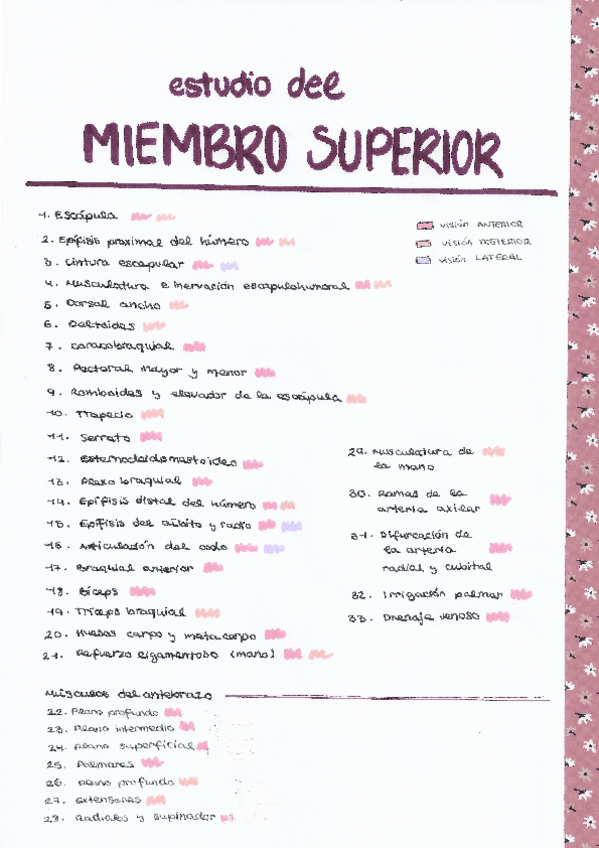 estudio del
MIEMBRO SUPERIOR
visión ANTERIOR
visión POSTERIOR
visión LATERAL
1. Escápula
2. Epífisis proximal del húmero
3. Cintura escapular
4. Musculatura e inervación escapulohumeral
5. Dorsal ancho
6. Deltoides
7. Coracobraquial
8. Pectoral mayor y menor
9. Romboides y elevador de la escápula
10. Trapecio
11. Serrato
12. Esternocleidomastoideo
13. Plexo braquial
14. Epífisis distal del húmero
15. Epífisis del cúbito y radio
16. Articulación del codo
17. Braquial anterior
18. Bíceps
19. Tríceps braquial
20. Huesos carpo y metacarpo
21. Refuerzo ligamentoso (mano)
Músculos del antebrazo
22. Plano profundo
23. Plano intermedio
24. Plano superficial
25. Palmares
26. Plano profundo
27. Extensores
28. Radiales y supinador
29. Musculatura de
la mano
30. Ramas de la
arteria axilar
31. Bifurcación de
la arteria
radial y cubital
32. Irrigación palmar
33. Drenaje venoso